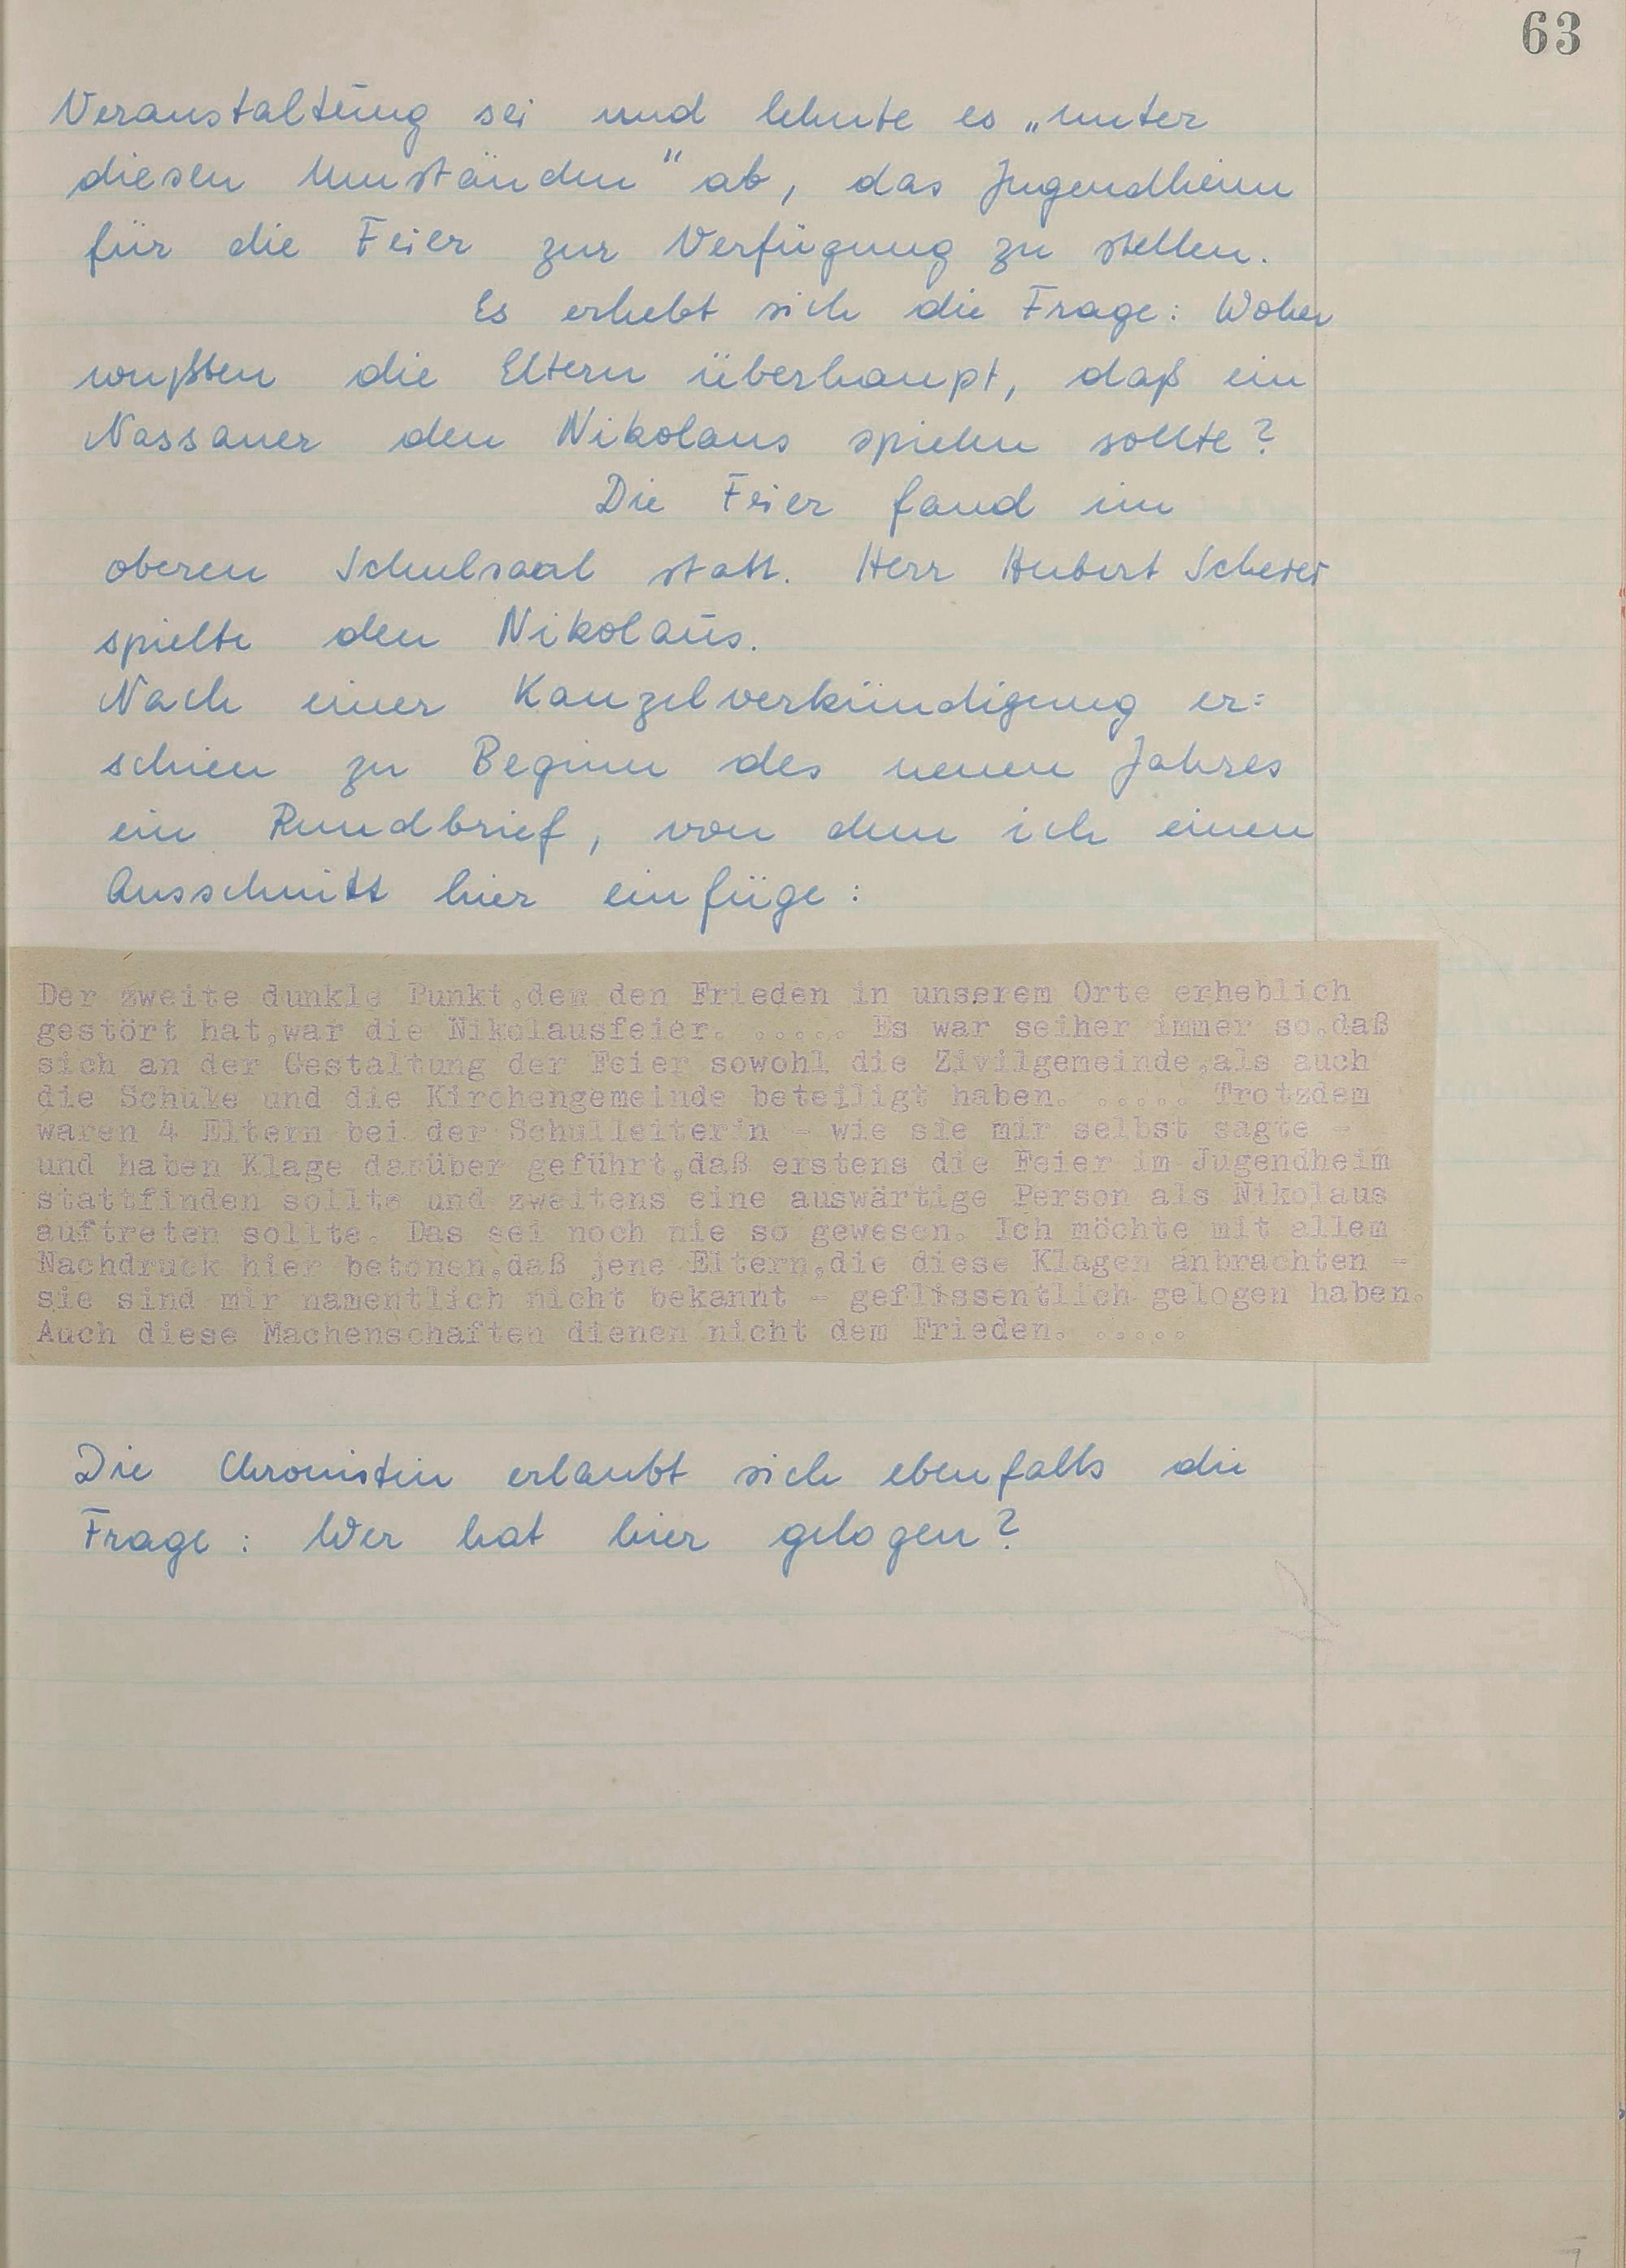 63
Veranstaltung sei und lehnte es „unter
diesen Umständen" ab, das Jugendheim
für die Feier zur Verfügung zu stellen.
Es erhebt sich die Frage: Woher
wußten die Eltern überhaupt, daß ein
Nassauer den Nikolaus spielen sollte?
Die Feier fand im
oberen Schulsaal statt. Herr Hubert Scherer
spielte den Nikolaus.
Nach einer Kanzelverkündigung er=
schien zu Beginn des neuen Jahres
ein Rundbrief, von dem ich einen
Ausschnitt hier einfüge:
Der zweite dunkle Punkt,der den Frieden in unserem Orte erheblich
gestört hat,war die Nikolausfeier. ..... Es war seiher immer so,daß
sich an der Gestaltung der Feier sowohl die Zivilgemeinde,als auch
die Schule und die Kirchengemeinde beteiligt haben. ..... Trotzdem
waren 4 Eltern bei der Schulleiterin - wie sie mir selbst sagte -
und haben Klage darüber geführt,daß erstens die Feier im Jugendheim
stattfinden sollte und zweitens eine auswärtige Person als Nikolaus
auftreten sollte. Das sei noch nie so gewesen. Ich möchte mit allem
Nachdruck hier betonen,daß jene Eltern,die diese Klagen anbrachten -
sie sind mir namentlich nicht bekannt - geflissentlich gelogen haben.
Auch diese Machenschaften dienen nicht dem Frieden. .....
Die Chronistin erlaubt sich ebenfalls die
Frage: Wer hat hier gelogen?